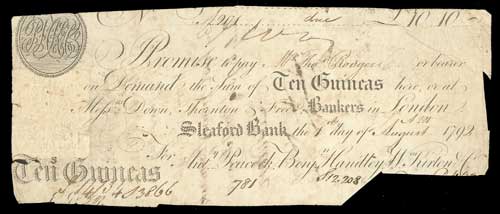 No A201 due £10.10
I Promise to pay Mr. Thos. Rodgers or bearer
on Demand the Sum of Ten Guineas here, or at
Messrs. Down, Thornton Free Bankers in London
Sleaford Bank the 1st day of August 1792
For Anty. Peacock, Benjn. Handley, Wm. Kirton & Co.
Ten Guineas
781 £12,208
3866